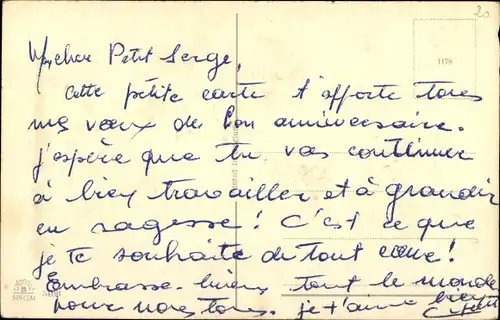 20
1178
Mon cher Petit Serge,
Cette petite carte t'apporte tous
mes vœux de bon anniversaire.
j'espère que tu vas continuer
à bien travailler et à grandir
en sagesse! C'est ce que
je te souhaite de tout cœur!
Embrasse bien tout le monde
pour nous tous. je t'aime bien
SPECIAL